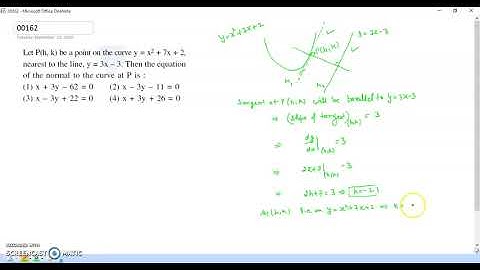 00162 - Microsoft Office OneNote
00162
Tuesday, September
Let P(h, k) be a point on the curve y = x² + 7x + 2,
nearest to the line, y = 3x − 3. Then the equation
of the normal to the curve at P is :
(1) x + 3y − 62 = 0 (2) x − 3y − 11 = 0
(3) x − 3y + 22 = 0 (4) x + 3y + 26 = 0
y = x² + 7x + 2
y = 3x − 3
P(h, k)
Tangent at P(h, k) will be parallel to y = 3x − 3
⇒ (slope of tangent)(h,k) = 3
⇒ dy/dx |(h,k) = 3
⇒ 2x + 7 |(h,k) = 3
⇒ 2h + 7 = 3 ⇒ h = −2
As (h, k) lie on y = x² + 7x + 2 ⇒ k =
RECORDED WITH
SCREENCAST MATIC